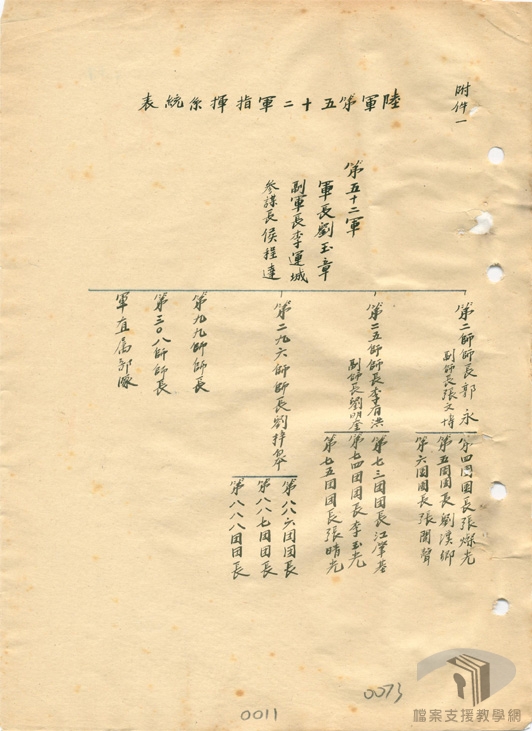 附件一
陸軍第五十二軍指揮系統表
第五十二軍
軍長劉玉章
副軍長李運成
參謀長侯程達
第二師師長郭永
副師長張文博
第四團團長張燦光
第五團團長劉漢卿
第六團團長張聞聲
第二五師師長李有洪
副師長劉明奎
第七三團團長江肇基
第七四團團長李玉光
第七五團團長張晴光
第二九六師師長劉梓皋
第八八六團團長
第八八七團團長
第八八八團團長
第九九師師長
第三〇八師師長
軍直屬部隊
0073
0011
檔案支援教學網